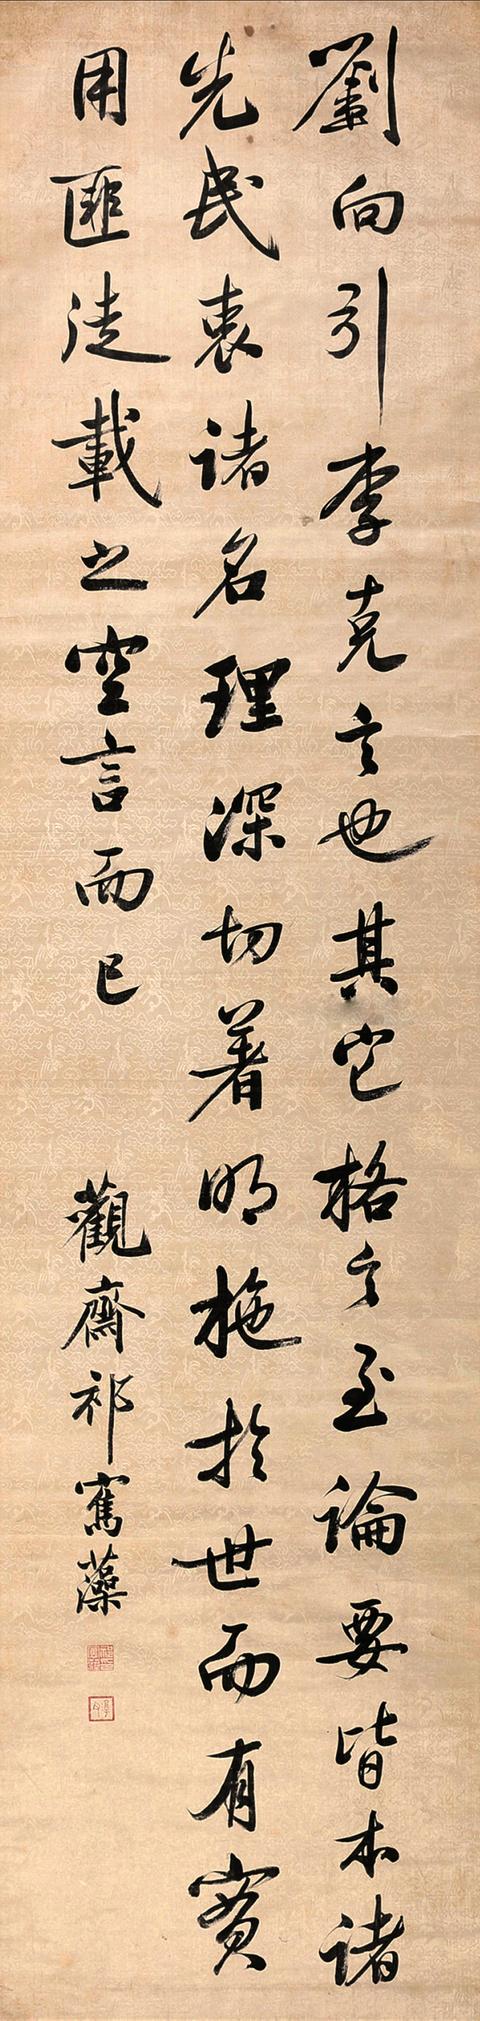 劉向引李克言也其它格言至論要皆本諸
先民衷諸名理深切著明施於世而有實
用匪徒載之空言而已
觀齋祁寯藻